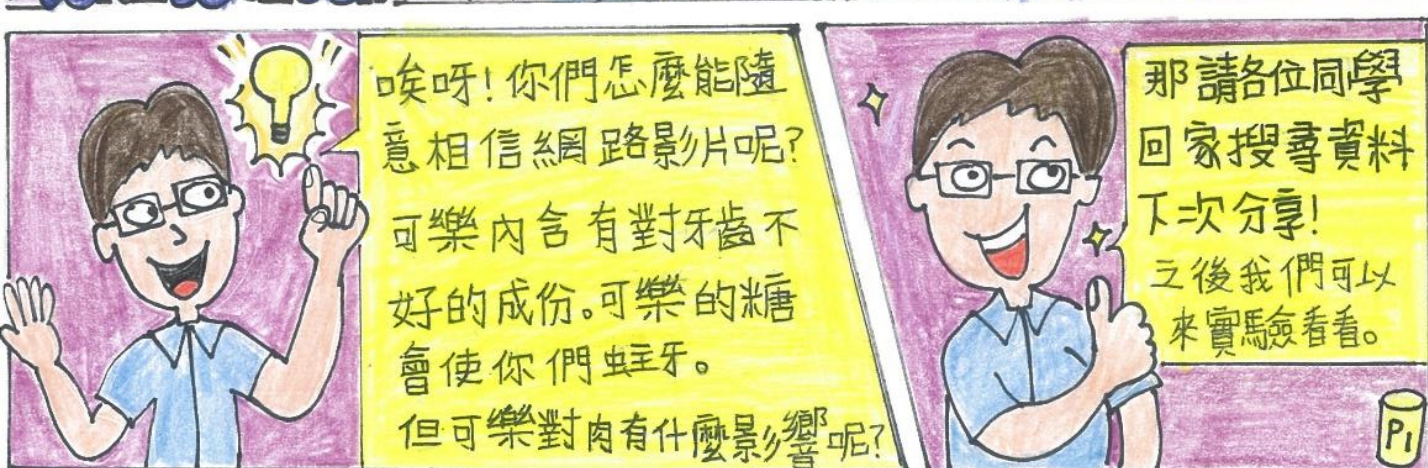 唉呀!你們怎麼能隨
意相信網路影片呢?
可樂內含有對牙齒不
好的成份。可樂的糖
會使你們蛀牙。
但可樂對肉有什麼影響呢?
那請各位同學
回家搜尋資料
下次分享!
之後我們可以
來實驗看看。
P1